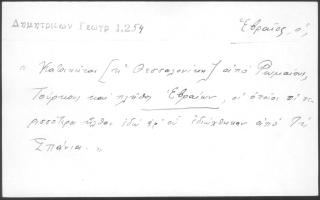 Δημητριέων Γεωγρ 1.254
Ἑβραῖος, ὁ,
„ Κατοικεῖται [ἡ Θεσσαλονίκη] ἀπὸ Ρωμαίους,
Τούρκους καὶ πλῆθος Ἑβραίων, οἱ ὁποῖοι πε
ρισσότεροι ἦλθαν ἐδῶ ἀφ' οὗ ἐδιώχθηκαν ἀπὸ τὴ
Σπάνια. „